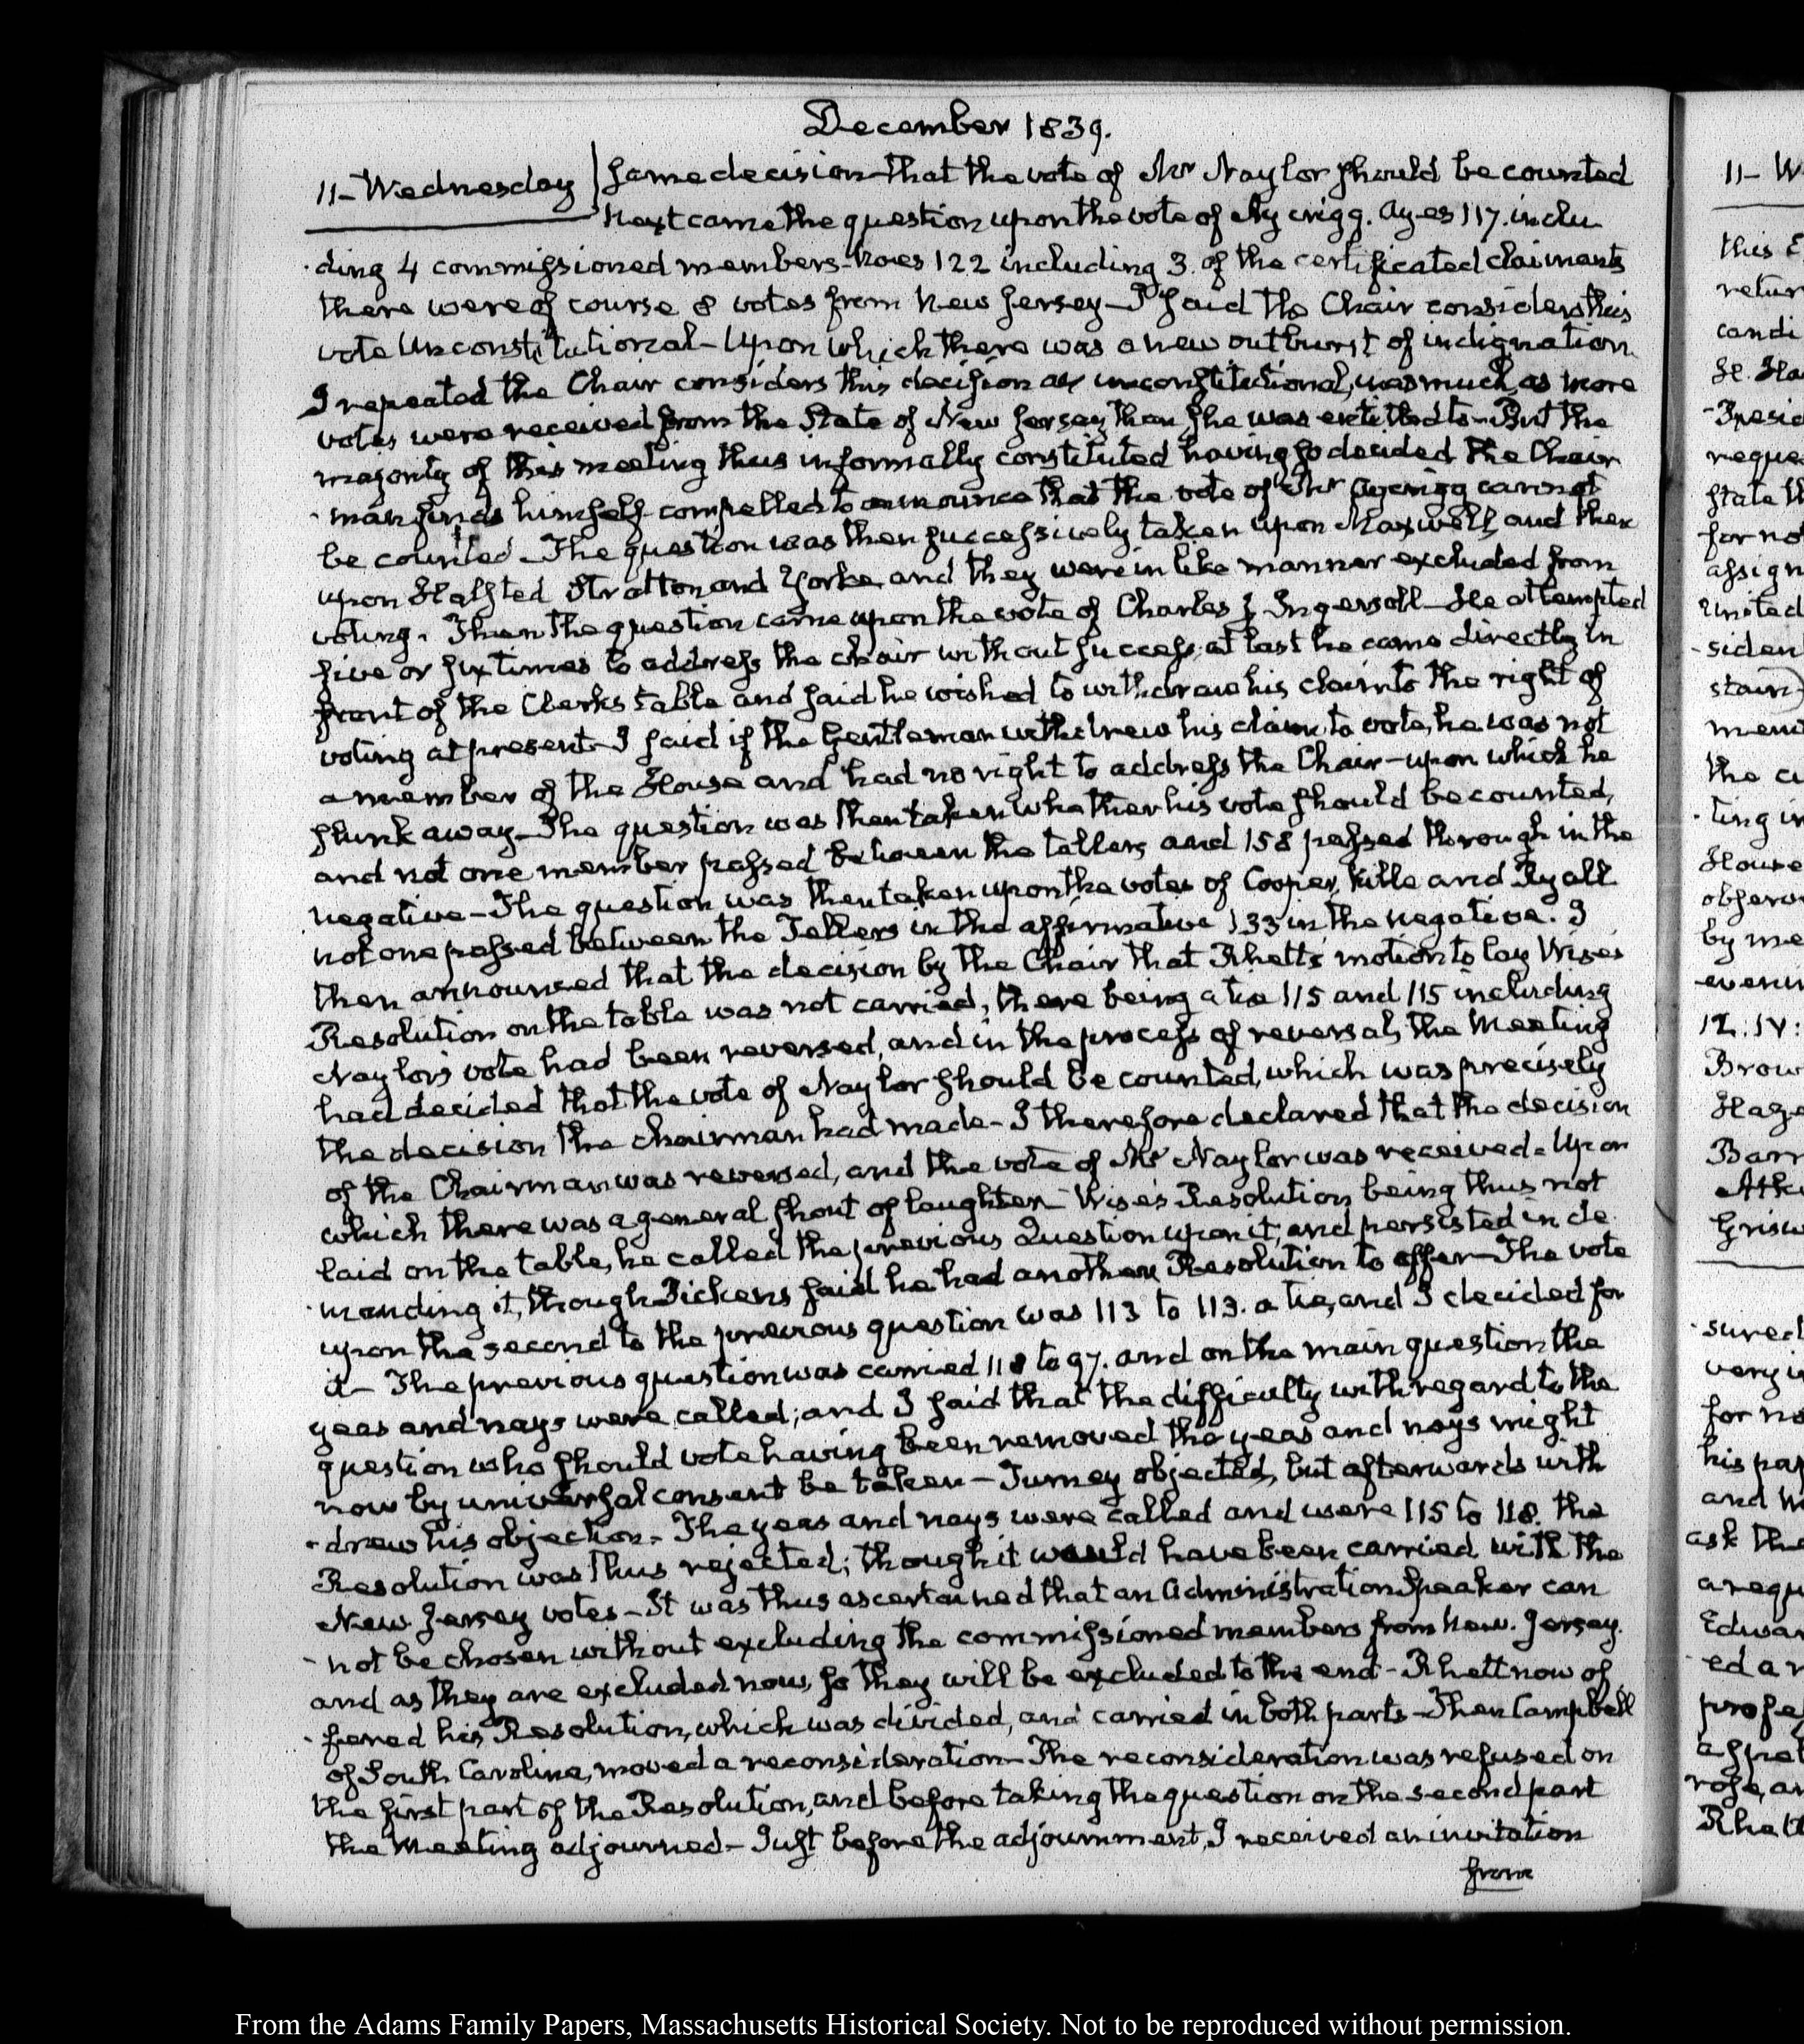 December 1839.
11-Wednesday
same decision that the vote of Mr Naylor should be counted
Next came the question upon the vote of Aycrigg. Ayes 117. inclu
ding 4 commissioned members - Noes 122 including 3. of the certificated claimants
there were of course 8 votes from New Jersey - I said the Chair considers this
vote Unconstitutional - Upon which there was a new outburst of indignation
I repeated the Chair considers this decision as unconstitutional, inasmuch, as more
votes were received from the State of New Jersey than she was entitled to - But the
majority of this meeting thus informally constituted having so decided the Chair
man finds himself compelled to announce that the vote of Mr Aycrigg cannot
be counted - The question was then successively taken upon Maxwell, and then
upon Halsted Stratton and Yorke, and they were in like manner excluded from
voting. Then the question came upon the vote of Charles J. Ingersoll - He attempted
five or six times to address the chair without success; at last he came directly in
front of the Clerks table and said he wished to withdraw his claim to the right of
voting at present - I said if the Gentleman withdrew his claim to vote, he was not
a member of the House and had no right to address the Chair - upon which he
slunk away - The question was then taken whether his vote should be counted,
and not one member passed between the tellers and 158 passed through in the
negative - The question was then taken upon the votes of Cooper, Kille and Ryall
not one passed between the Tellers in the affirmative 133 in the negative. I
then announced that the decision by the Chair that Rhett's motion to lay Wise's
Resolution on the table was not carried, there being a tie 115 and 115 including
Naylor's vote had been reversed, and in the process of reversal, the Meeting
had decided that the vote of Naylor should be counted, which was precisely
the decision the chairman had made - I therefore declared that the decision
of the Chairman was reversed, and the vote of Mr Naylor was received - Upon
which there was a general shout of laughter - Wise's Resolution being thus not
laid on the table, he called the previous Question upon it, and persisted in de
manding it, though Dickens said he had another Resolution to offer - The vote
upon the second to the previous question was 113 to 113. a tie, and I decided for
it - The previous question was carried 118 to 97. and on the main question the
yeas and nays were called; and I said that the difficulty with regard to the
question who should vote having been removed the yeas and nays might
now by universal consent be taken - Turney objected, but afterwards with
drew his objection - The yeas and nays were called and were 115 to 118. the
Resolution was thus rejected; though it would have been carried with the
New Jersey votes - It was thus ascertained that an Administration Speaker can
not be chosen without excluding the commissioned members from New. Jersey.
and as they are excluded now, so they will be excluded to the end - Rhett now of
fered his Resolution, which was divided, and carried in both parts - Then Campbell
of South Carolina, moved a reconsideration - The reconsideration was refused on
the first part of the Resolution, and before taking the question on the second part
the Meeting adjourned - Just before the adjournment, I received an invitation
from
11- W
this
retur
candi
H. Ha
Presid
reque
state th
for not
assign
United
siden
stain
mem
the cu
ting in
House
observ
by me
evenin
12. IV:
Brow
Haze
Barn
Athe
Grisw
sured
very i
for no
his par
and W
ask the
a requ
Edwar
ed a n
profes
rose, an
Rhett
From the Adams Family Papers, Massachusetts Historical Society. Not to be reproduced without permission.